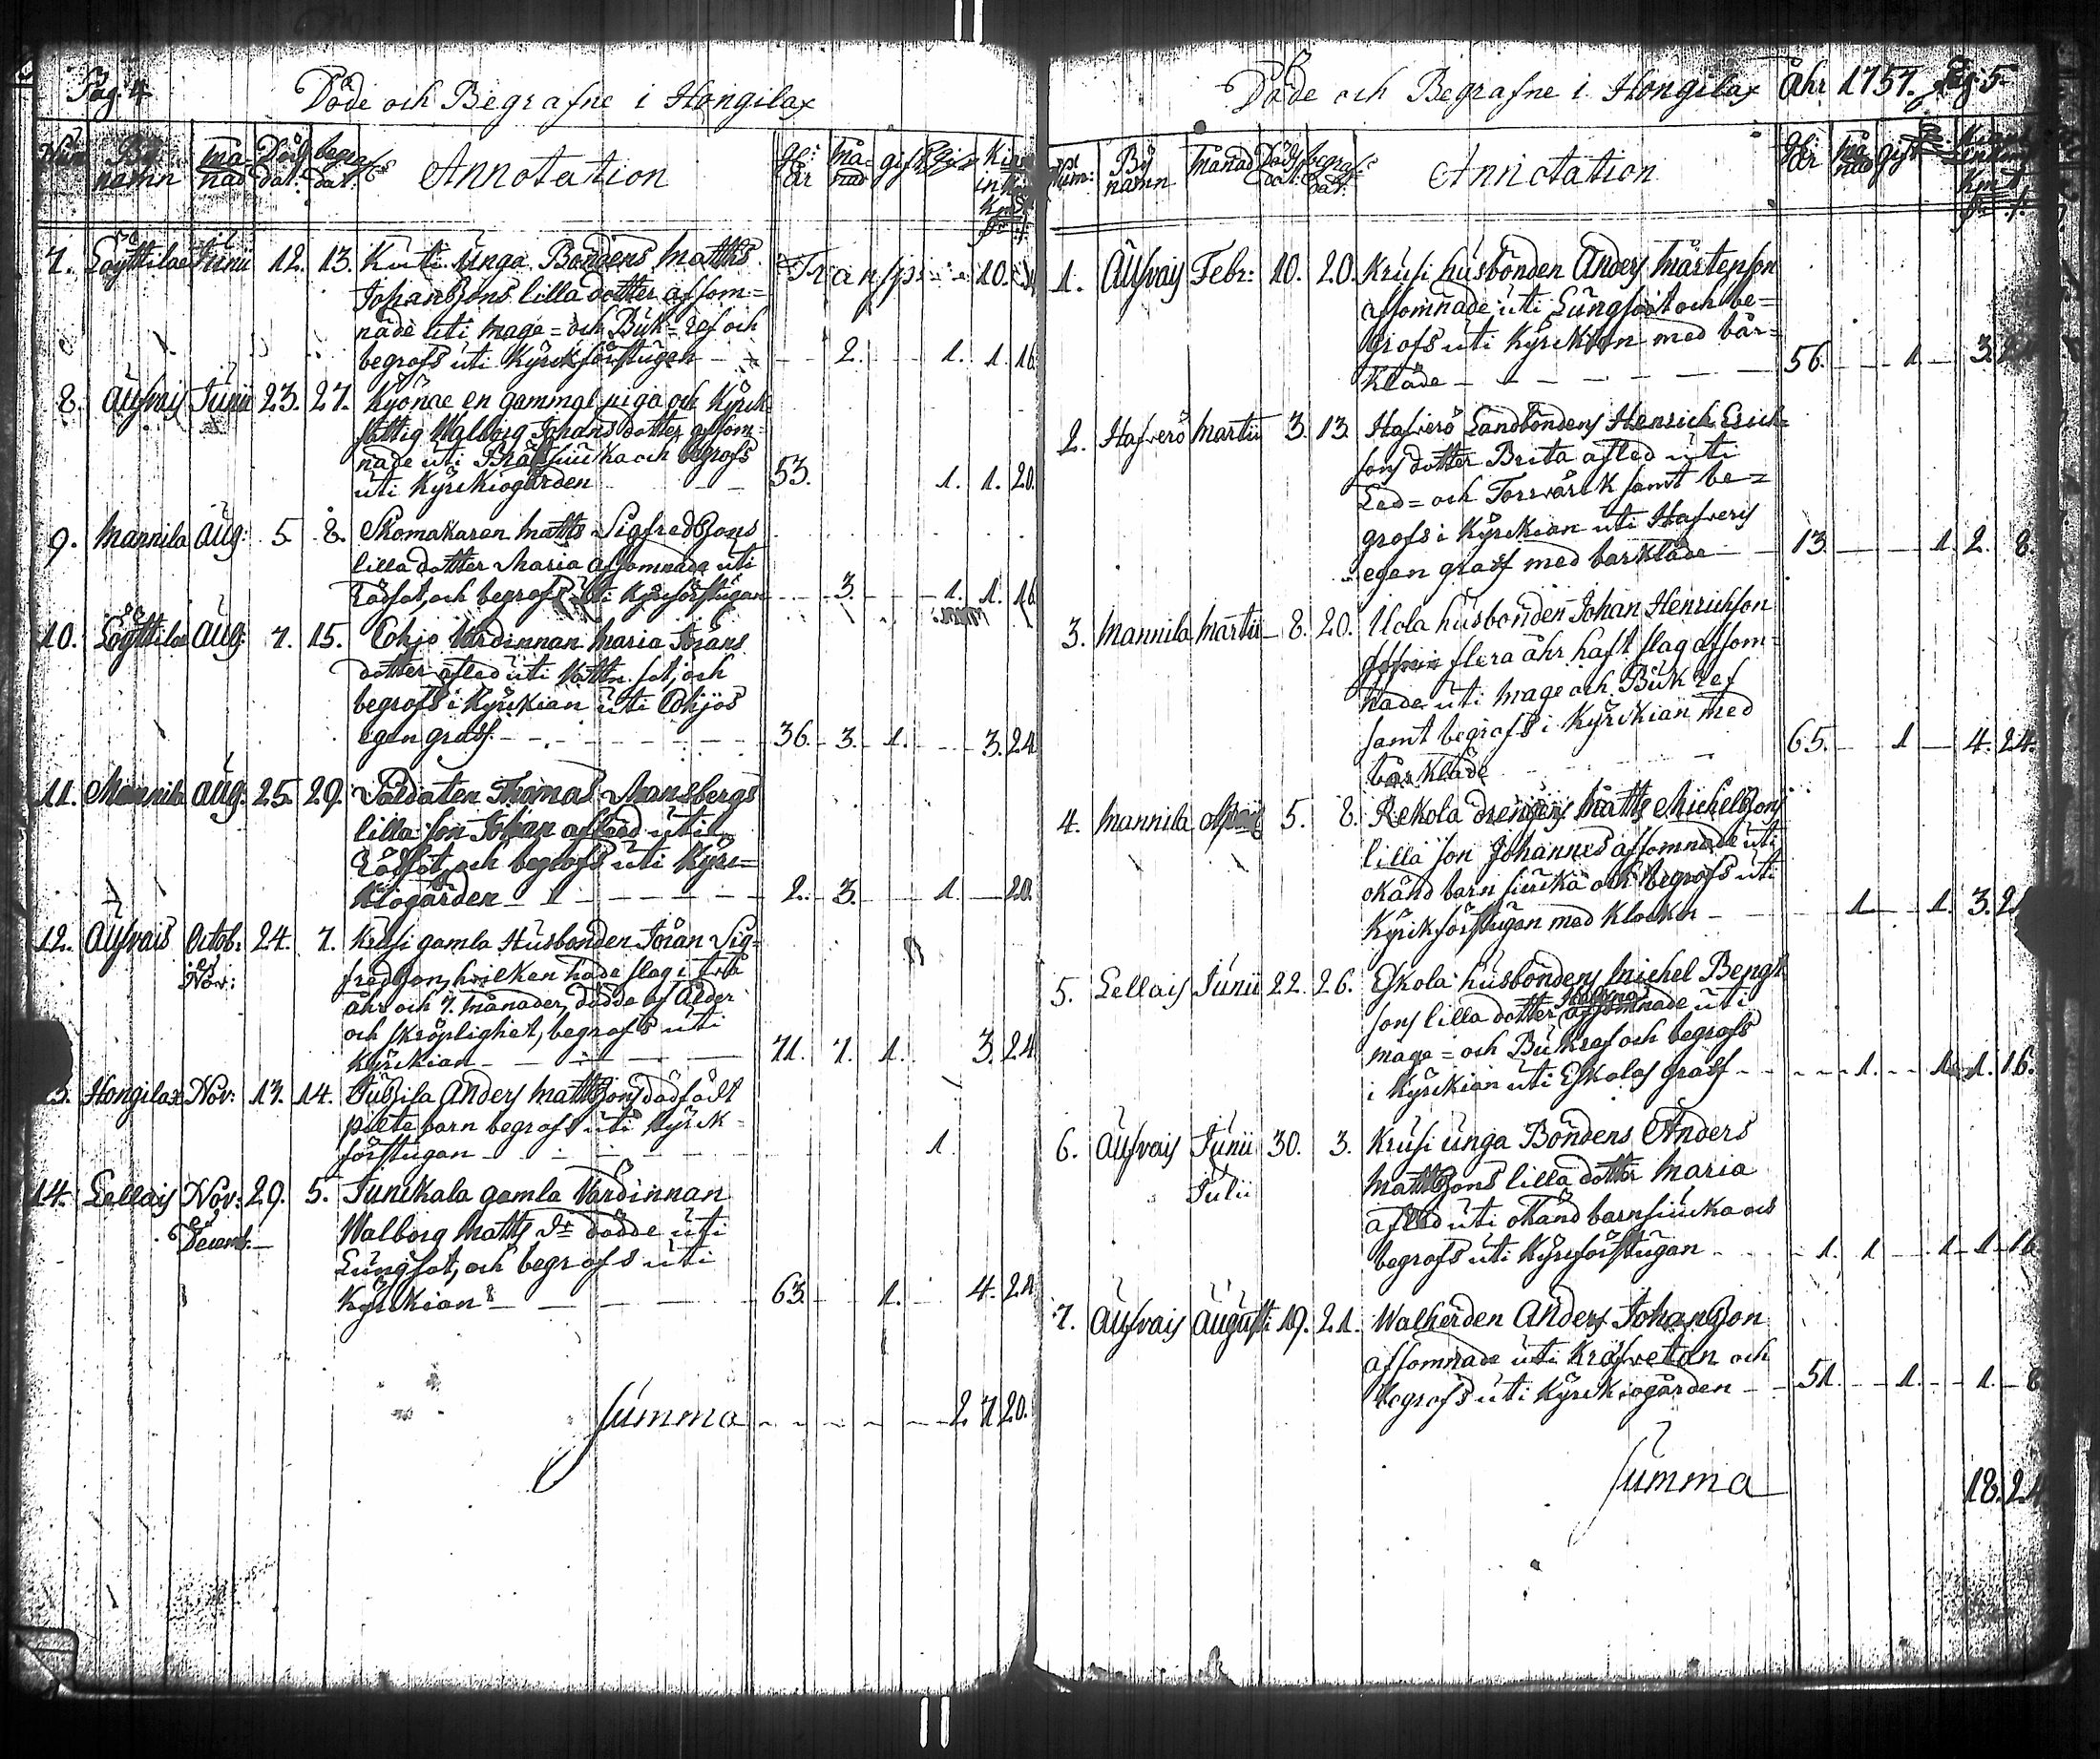 Pag 4.
Döde och Begrafne i Hongilax
Num By namn må-nad Död dat: begrafs dat: Annotation åhr må-nad gift Kyrk
Transp: 10.
7. Löyttilae Junii 12. 13. Kuti Unga Bondens Matths
Johanßons lilla dotter afsom=
nade uti Mage= och Buk= ref och
begrofs uti Kyrckförstugan 2. 1. 1. 16.
8. Aufvais Junii 23. 27. Kyönae en gammal piga och Kyrck
fattig Walborg Johans dotter afsom=
nade uti Bråksiucka och begrofs
uti Kyrckiogården 53. 1. 1. 20.
9. Mannila Aug: 5. 8. Skomakaren Matts Sigfredßons
lilla dotter Maria afsomnade uti
Rödsot, och begrofs uti Kyrckförstugan 3. 1. 1. 16.
10. Löyttilae Aug: 7. 15. Eohjo Värdinnan Maria Jörans
dotter afled uti Vattu sot, och
begrofs i Kyrckian uti Eohjos
egen graf. 36. 3. 1. 3. 24.
11. Mannila Aug. 25. 29. Soldaten Thomas Mansbergs
lilla son Johan afled uti
Rödsot, och begrofs uti Kyrc=
kiogården 2. 3. 1. 20.
12. Aufvais Octob: 24. 7. Krusi gamla Husbonden Jöran Sig=
et Nov: fredßon, hvilken hade slag i två
åhr och 7. månader, dödde af Ålder
och skröplighet, begrofs uti
Kyrckian 71. 7. 1. 3. 24
13. Hongilax Nov: 13. 14. Jußila Anders Mattßons dödfödt
pilte barn begrofs uti Kyrck=
förstugan 1.
14. Lellais Nov: 29. 5. Junckala gamla Värdinnan
et Decemb: Walborg Matts Dr dödde uti
Lungsot, och begrofs uti
Kyrckian 63. 1. 4. 24
Summa 27 20.
Döde och Begrafne i Hongilax Åhr 1757. Pag: 5.
Num: By namn Månad Döds dat: begrafs dat: Annotation åhr må nad gift
1. Aufvais Febr: 10. 20. Krusi husbonden Anders Mårtenson
afsomnade uti Lungsot och be=
grofs uti Kyrckian med bår=
kläde 56. 1 3.
2. Hafverö Martii 3. 13 Hafverö Landbondens Henrich Erich=
sons dotter Brita afled uti
Led= och Torrvärck samt be=
grofs i Kyrckian uti Hafveris
egen graf med barkläde 13. 1. 2. 8.
3. Mannila Martii 8. 20. Uola husbonden Johan Henrichson
flera åhr haft slag afsom=
nade uti Mage och Buk ref
samt begrofs i Kyrckian med
bår kläde 65. 1 4. 24.
4. Mannila April 5. 8. Rekola drengens Matts Michelßons
lilla son Johannes afsomnade uti
okänd barn siucka och begrofs uti
Kyrckförstugan med klockor 1 1. 3.
5. Lellais Junii 22. 26. Eskola husbondens Michel Bengt
sons lilla dotter Helena afsomnade uti
mage= och Bukref och begrofs
i Kyrckian uti Eskolas graf 1. 1. 1. 16.
6. Aufvais Junii 30. 3. Krusi unga Bondens Anders
Julii Mattßons lilla dotter Maria
afled uti okänd barnsiucka och
begrofs uti Kyrckförstugan 1. 1 1 1. 16
7. Aufvais Augusti 19. 21. Walherden Anders Johanßon
afsomnade uti Kräfvetan och
begrofs uti Kyrckiogården 51. 1. 1. 8
Summa 18. 24